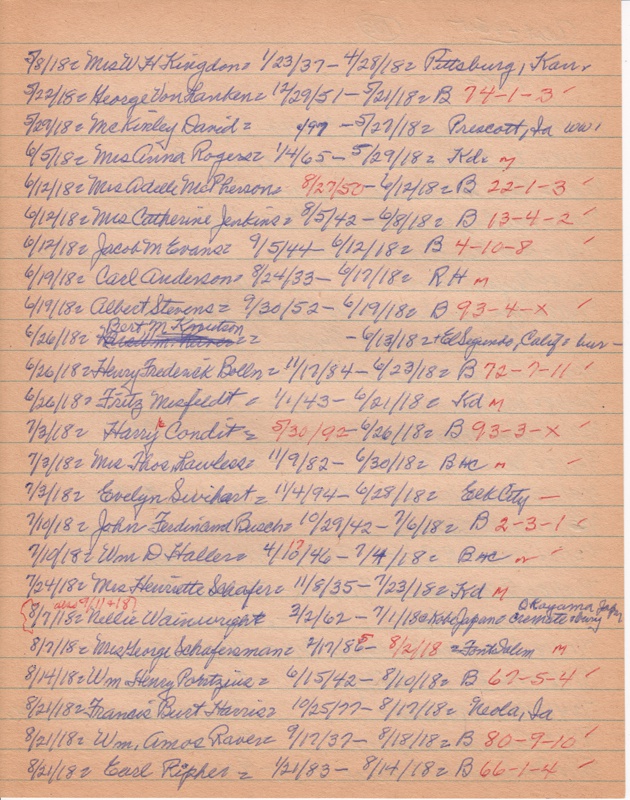 5/8/18 = Mrs W H Kingdon = 1/23/37 - 4/28/18 = Pittsburg, Kan.
5/22/18 = George Von Hanken = 12/29/51 - 5/21/18 = B 74-1-3 ✓
5/29/18 = McKinley David = /97 - 5/27/18 = Prescott, Ia WW1
6/5/18 = Mrs Anna Rogers = 1/4/65 - 5/29/18 = Kd = M
6/12/18 = Mrs Adele McPherson = 8/27/50 - 6/12/18 = B 22-1-3 ✓
6/12/18 = Mrs Catherine Jenkins = 8/5/42 - 6/8/18 = B 13-4-2 ✓
6/12/18 = Jacob M Evans = 9/5/44 - 6/12/18 = B 4-10-8 ✓
6/19/18 = Carl Anderson = 8/24/33 - 6/17/18 = R H M
6/19/18 = Albert Stevens = 9/30/52 - 6/19/18 = B 93-4-X ✓
Bert M Knutson
6/26/18 = = - 6/13/18 = + El Segundo, Calif = bur -
6/26/18 = Henry Frederick Bolln = 11/17/84 - 6/23/18 = B 72-7-11 ✓
6/26/18 = Fritz Misfeldt = 1/1/43 - 6/21/18 = Kd M
7/3/18 = Harry Condit = 5/30/92 - 6/26/18 = B 93-3-X ✓
7/3/18 = Mrs Thos, Lawless = 11/9/82 - 6/30/18 = B HC M -
7/3/18 = Evelyn Sivihart = 11/4/94 - 6/28/18 = Elk City -
7/10/18 = John Ferdinand Busch = 10/29/42 - 7/6/18 = B 2-3-1 ✓
7/10/18 = Wm D Haller = 4/17/46 - 7/4/18 = B HC ✓
7/24/18 = Mrs Henriette Schafer = 11/8/35 - 7/23/18 = Kd M
also 9/11/18 Okayama Japan
8/7/18 = Nellie Wainwright 3/2/62 - 7/1/18 = Kobe Japan = crematory
8/7/18 = Mrs George Schafersman = 2/17/85 - 8/2/18 = Font Salem M
8/14/18 = Wm Henry Pontzius = 6/15/42 - 8/10/18 = B 67-5-4 ✓
8/21/18 = Francis Burt Harris = 10/25/77 - 8/17/18 = Neola, Ia
8/21/18 = Wm, Amos Raver = 9/17/37 - 8/18/18 = B 80-9-10 ✓
8/21/18 = Earl Ripher = 1/21/83 - 8/14/18 = B 66-1-4 ✓